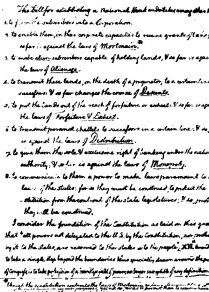 The bill for establishing a National Bank undertakes among other things
1. to form the subscribers into a Corporation.
2. to enable them, in their corporate capacities to receive grants of land; and
so far is against the laws of Mortmain.
3. to make alien subscribers capable of holding lands, & so far is against
the laws of Alienage.
4. to transmit these lands, on the death of a proprietor, to a certain line of
successors: & so far changes the course of Descents.
5. to put the lands out of the reach of forfeiture or escheat. & so far is against
the laws of Forfeiture & Escheat.
6. to transmit personal chattels to successors in a certain line. & so far
is against the laws of Distribution.
7. to give them the sole & exclusive right of banking under the national
authority: & so far is against the laws of Monopoly.
8. to communicate to them a power to make laws paramount to the
laws of the states: for so they must be construed, to protect the
institution from the controul of the state legislatures; & so, probably
they will be construed.
I consider the foundation of the Constitution as laid on this ground
that 'all powers not delegated to the U.S. by the Constitution, nor prohibited
by it to the states, are reserved to the states or to the people'
to take a single step beyond the boundaries thus specially drawn around the powers
of Congress, is to take possession of a boundless field of power, no longer susceptible of any definition.